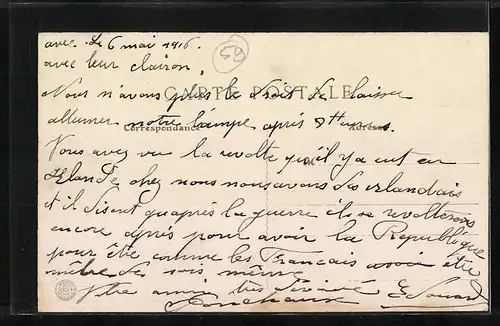 avec. Le 6 mai 1916.
59
avec leur clairon,
CARTE POSTALE
Nous n'avons plus le droit de laisser
allumer notre lampe après 8 Heures.
Correspondance
Adresse
Vous avez vu la revolte qu'il y a eut en
Irlande chez nous nous avons des irlandais
et il disent qu'après la guerre ils se revolterons
encore après pour avoir la Republique
pour être comme les Francais avoir être
mêtre de sois même
Votre ami très dévoué Edouard